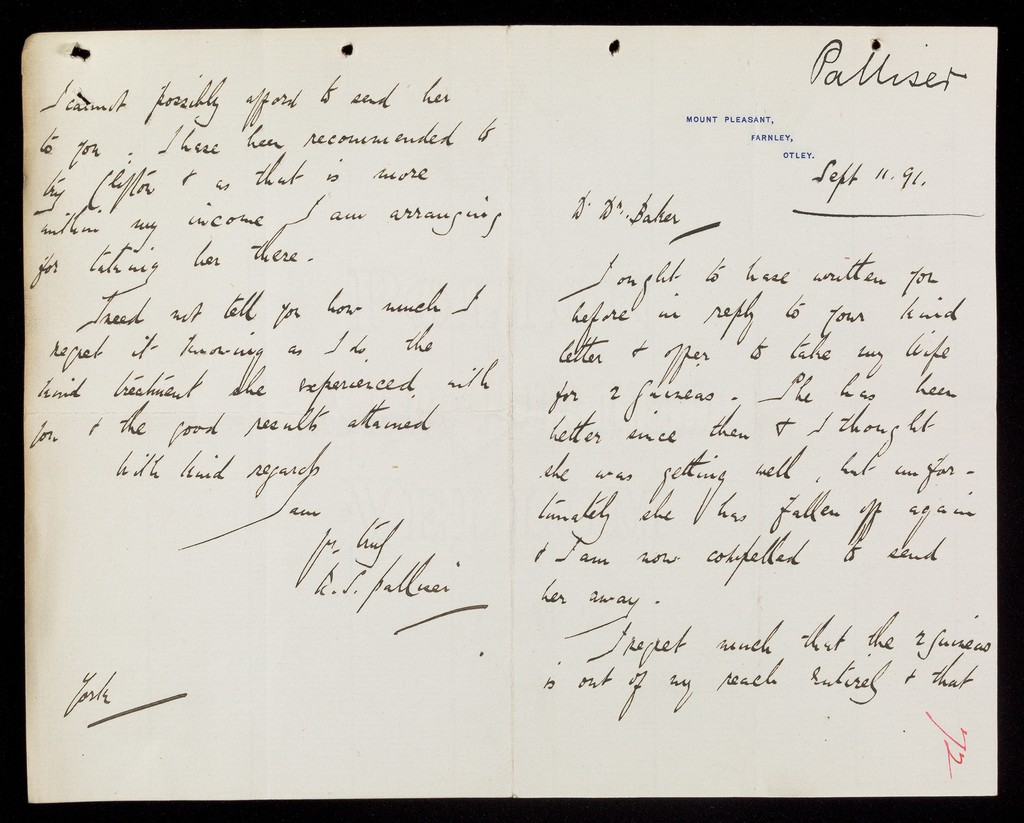 Palliser
MOUNT PLEASANT,
FARNLEY,
OTLEY.
Sept 11. 91.
Dr Dr. Baker
I ought to have written you
before in reply to your kind
letter & offer to take my wife
for 2 guineas. She has been
better since then & I thought
she was getting well, but unfor-
tunately she has fallen off again
& I am now compelled to send
her away.
I regret much that the 2 guineas
is out of my reach entirely & that
72
I cannot possibly afford to send her
to you. I have been recommended to
try Clifton & as that is more
within my income I am arranging
for taking her there.
I need not tell you how much I
regret it knowing as I do, the
kind treatment she experienced with
you & the good results attained
With kind regards
I am
yrs. truly
Palliser
York